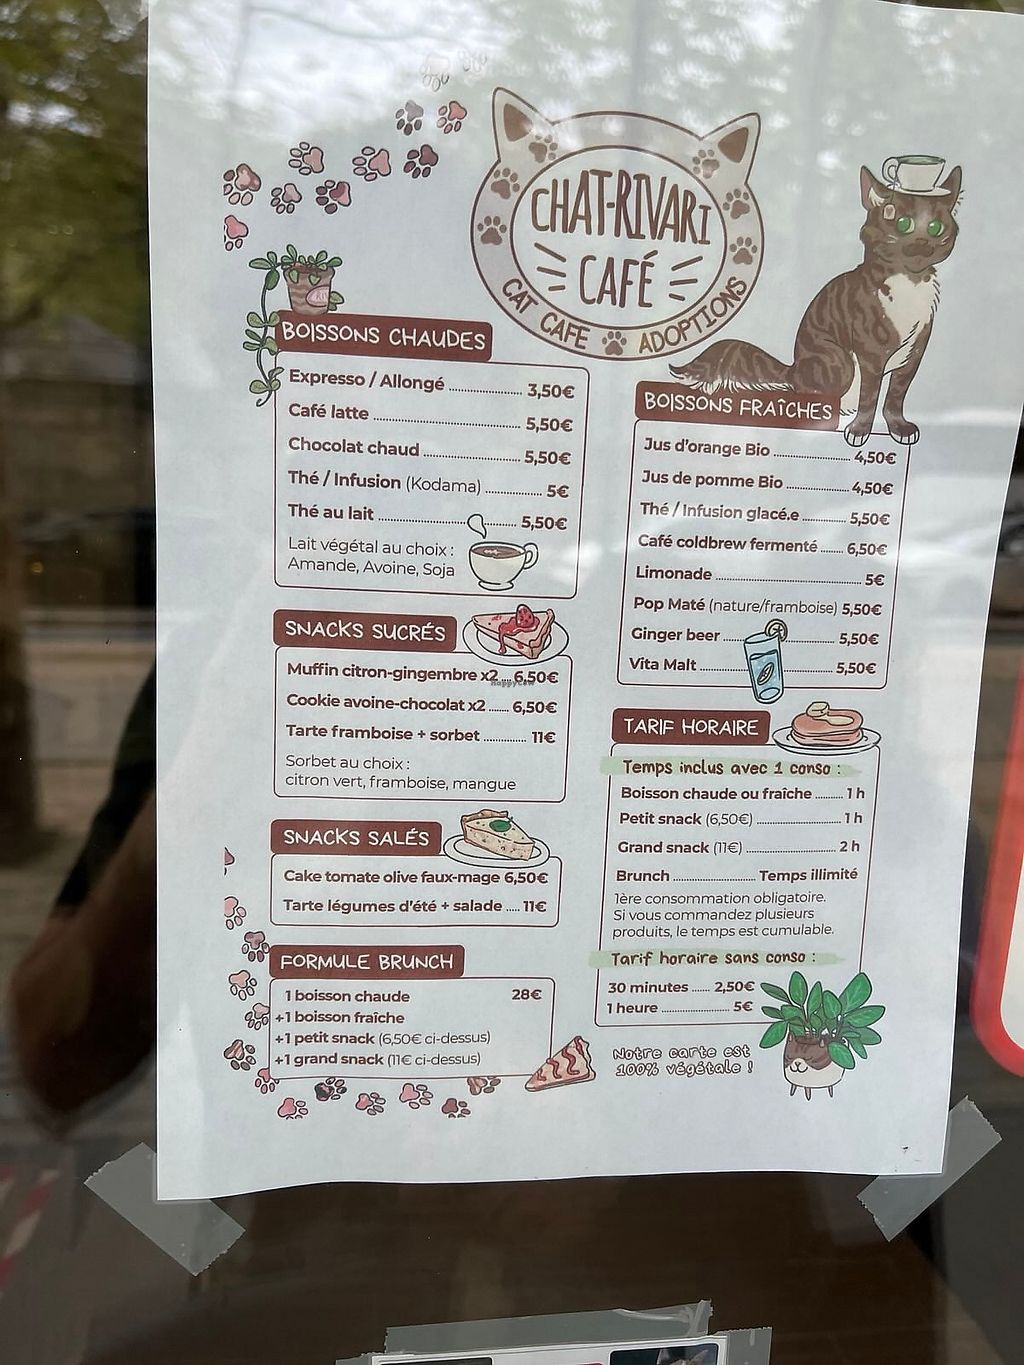 CHAT-RIVARI
CAFÉ
CAT CAFE ADOPTIONS
BOISSONS CHAUDES
Expresso / Allongé ........ 3,50€
Café latte ........ 5,50€
Chocolat chaud ........ 5,50€
Thé / Infusion (Kodama) ........ 5€
Thé au lait ........ 5,50€
Lait végétal au choix :
Amande, Avoine, Soja
SNACKS SUCRÉS
Muffin citron-gingembre x2 .... 6,50€
HappyCow
Cookie avoine-chocolat x2 ...... 6,50€
Tarte framboise + sorbet ........ 11€
Sorbet au choix :
citron vert, framboise, mangue
SNACKS SALÉS
Cake tomate olive faux-mage 6,50€
Tarte légumes d'été + salade ..... 11€
FORMULE BRUNCH
1 boisson chaude 28€
+1 boisson fraîche
+1 petit snack (6,50€ ci-dessus)
+1 grand snack (11€ ci-dessus)
BOISSONS FRAÎCHES
Jus d'orange Bio ........ 4,50€
Jus de pomme Bio ........ 4,50€
Thé / Infusion glacé.e ........ 5,50€
Café coldbrew fermenté ........ 6,50€
Limonade ........ 5€
Pop Maté (nature/framboise) 5,50€
Ginger beer ........ 5,50€
Vita Malt ........ 5,50€
TARIF HORAIRE
Temps inclus avec 1 conso :
Boisson chaude ou fraîche ........ 1 h
Petit snack (6,50€) ........ 1 h
Grand snack (11€) ........ 2 h
Brunch ........ Temps illimité
1ère consommation obligatoire.
Si vous commandez plusieurs
produits, le temps est cumulable.
Tarif horaire sans conso :
30 minutes ...... 2,50€
1 heure ........ 5€
Notre carte est
100% végétale !